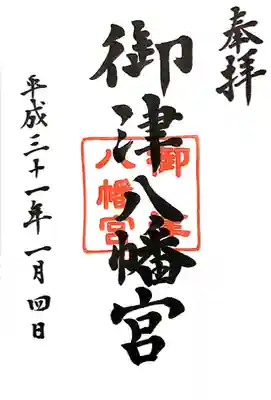 奉拝
御津八幡宮
御津
八幡宮
平成三十一年一月四日